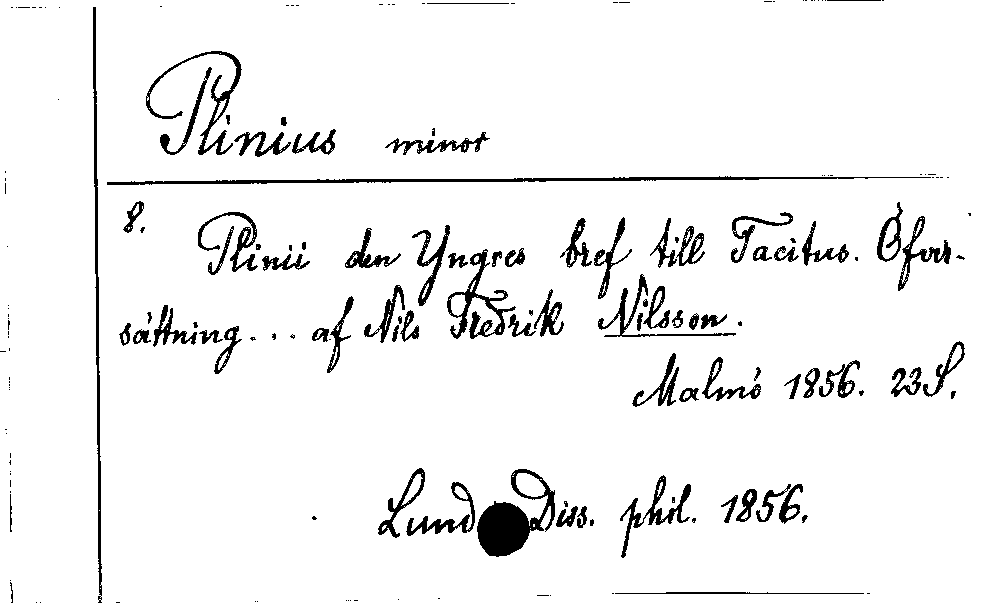 Plinius minor
8.
Plinii den Yngres bref till Tacitus. Öfver-
sättning... af Nils Fredrik Nilsson.
Malmö 1856. 23 S.
Lund Diss. phil. 1856.